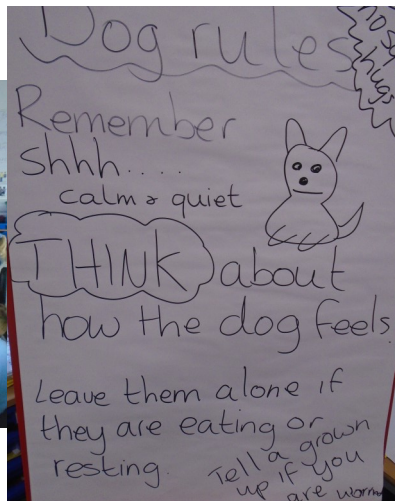 Dog rules
hugs
Remember
shhh....
calm & quiet
THINK about
how the dog feels.
Leave them alone if
they are eating or
resting.
Tell a grown
up if you
are